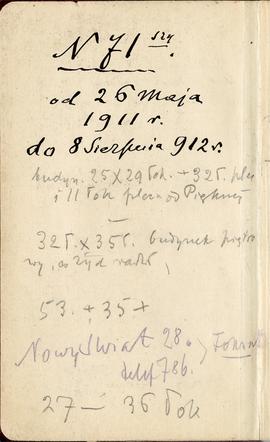 N 71 szy
od 26 Maja
1911 r.
do 8 Sierpnia 912 r.
budyn. 25 X 29 łok. + 32 ł. plac
i 11 łok placu od Pięknej
32 ł. X 35 ł. budynek piętro
wy, co żyd
53. + 35 +
Nowy Świat 28.
telef 786.
27 — 36 łok